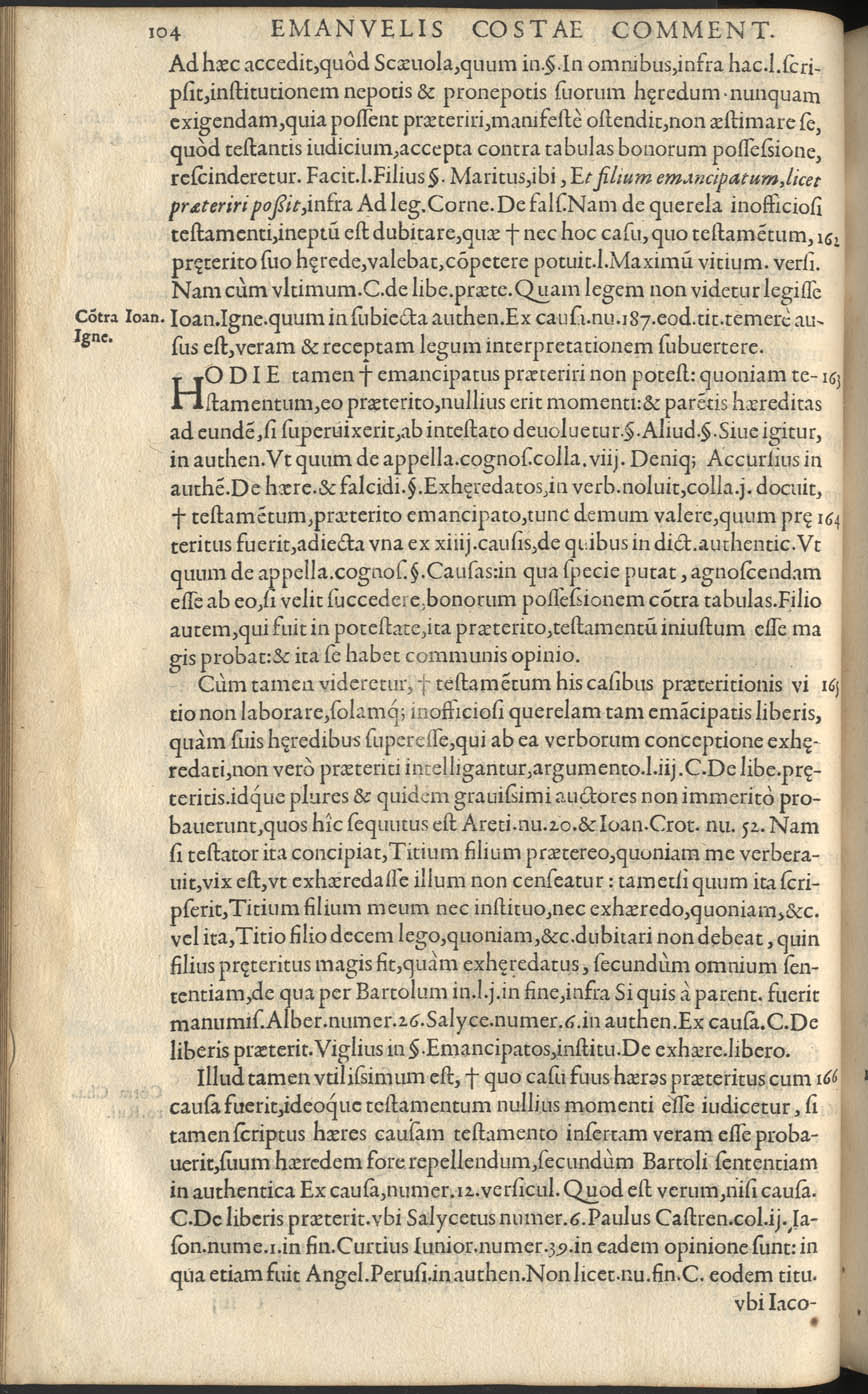 104 EMANVELIS COSTAE COMMENT.
Ad hæc accedit,quòd Scæuola,quum in.§.In omnibus,infra hac.l.ſcri-
pſit,inſtitutionem nepotis & pronepotis ſuorum hęredum nunquam
exigendam,quia poſſent præteriri,manifeſtè oſtendit,non æſtimare ſe,
quòd teſtantis iudicium,accepta contra tabulas bonorum poſſeſsione,
reſcinderetur. Facit.l.Filius §. Maritus,ibi , Et filium emancipatum,licet
præteriri poßit,infra Ad leg.Corne.De falſ.Nam de querela inofficioſi
teſtamenti,ineptū eſt dubitare,quæ † nec hoc caſu, quo teſtamẽtum, 162
pręterito ſuo hęrede,valebat,cõpetere potuit.l.Maximū vitium. verſi.
Nam cùm vltimum.C.de libe.præte.Quam legem non videtur legiſſe
Cõtra Ioan. Igne.
Ioan.Igne.quum in ſubiecta authen.Ex cauſa.nu.187.eod.tit.temerè au-
ſus eſt,veram & receptam legum interpretationem ſubuertere.
HODIE tamen † emancipatus præteriri non poteſt: quoniam te- 163
ſtamentum,eo præterito,nullius erit momenti:& parẽtis hæreditas
ad eundẽ,ſi ſuperuixerit,ab inteſtato deuoluetur.§.Aliud.§.Siue igitur,
in authen.Vt quum de appella.cognoſ.colla.viij. Deniq; Accurſius in
authẽ.De hære.& falcidi.§.Exhęredatos,in verb.noluit,colla.j. docuit,
† teſtamẽtum,præterito emancipato,tunc demum valere,quum prę 164
teritus fuerit,adiecta vna ex xiiij.cauſis,de quibus in dict.authentic.Vt
quum de appella.cognoſ.§.Cauſas:in qua ſpecie putat , agnoſcendam
eſſe ab eo,ſi velit ſuccedere,bonorum poſſeſsionem cõtra tabulas.Filio
autem,qui fuit in poteſtate,ita præterito,teſtamentū iniuſtum eſſe ma
gis probat:& ita ſe habet communis opinio.
Cùm tamen videretur, † teſtamẽtum his caſibus præteritionis vi 165
tio non laborare,ſolamq́; inofficioſi querelam tam emãcipatis liberis,
quàm ſuis hęredibus ſupereſſe,qui ab ea verborum conceptione exhę-
redati,non verò præteriti intelligantur,argumento.l.iij.C.De libe.prę-
teritis.idq́ue plures & quidem grauiſsimi auctores non immeritò pro-
bauerunt,quos hîc ſequutus eſt Areti.nu.20.& Ioan.Crot. nu. 52. Nam
ſi teſtator ita concipiat,Titium filium prætereo,quoniam me verbera-
uit,vix eſt,vt exhæredaſſe illum non cenſeatur : tametſi quum ita ſcri-
pſerit,Titium filium meum nec inſtituo,nec exhæredo,quoniam,&c.
vel ita,Titio filio decem lego,quoniam,&c.dubitari non debeat , quin
filius pręteritus magis fit,quàm exhęredatus , ſecundùm omnium ſen-
tentiam,de qua per Bartolum in.l.j.in fine,infra Si quis à parent. fuerit
manumiſ.Alber.numer.26.Salyce.numer.6.in authen.Ex cauſa.C.De
liberis præterit.Viglius in §.Emancipatos,inſtitu.De exhære.libero.
Illud tamen vtiliſsimum eſt, † quo caſu ſuus hæres præteritus cum 166
cauſa fuerit,ideoq́ue teſtamentum nullius momenti eſſe iudicetur , ſi
tamen ſcriptus hæres cauſam teſtamento inſertam veram eſſe proba-
uerit,ſuum hæredem fore repellendum,ſecundùm Bartoli ſententiam
in authentica Ex cauſa,numer.12.verſicul. Quod eſt verum,niſi cauſa.
C.De liberis præterit.vbi Salycetus numer.6.Paulus Caſtren.col.ij.Ia-
ſon.nume.1.in fin.Curtius Iunior.numer.39.in eadem opinione ſunt: in
qua etiam fuit Angel.Peruſi.in authen.Non licet.nu.fin.C. eodem titu.
vbi Iaco-